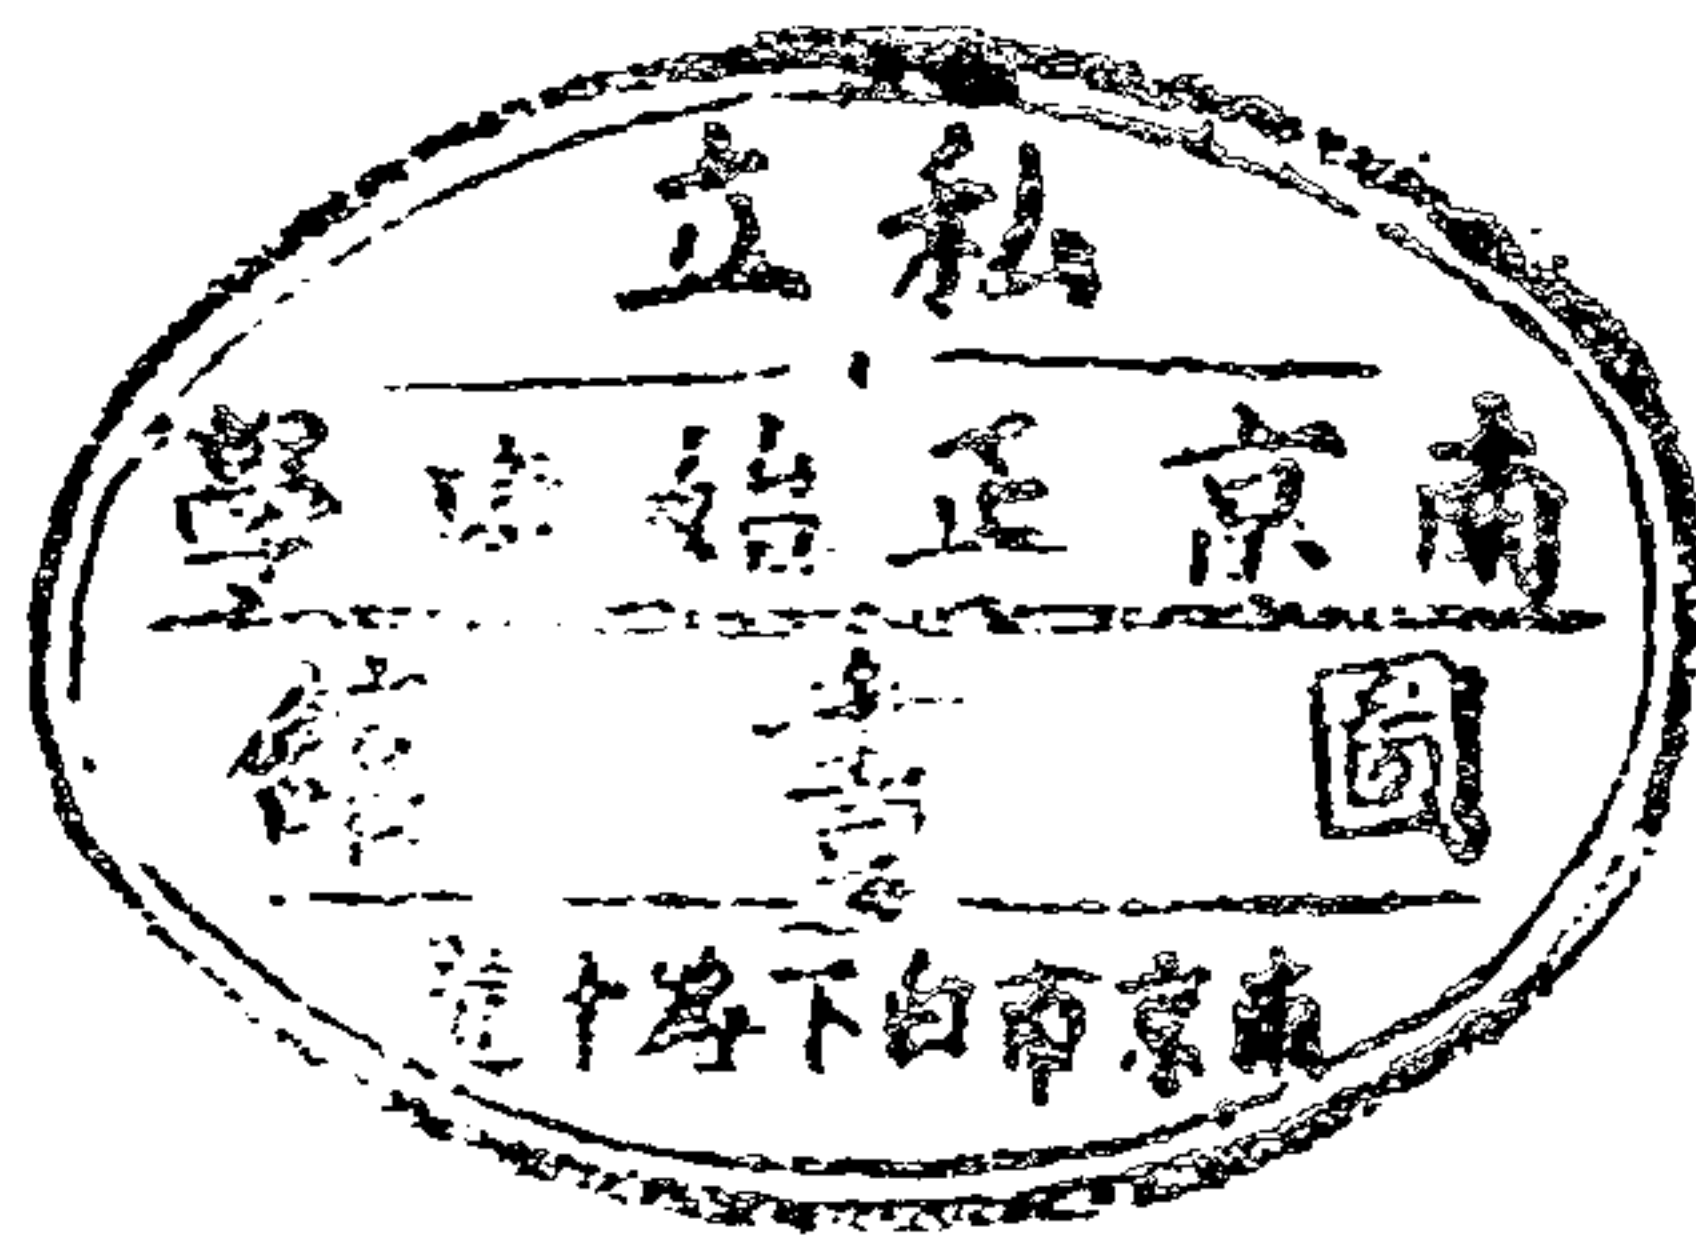 私立
南京正始中學
圖書館
南京市白下路十